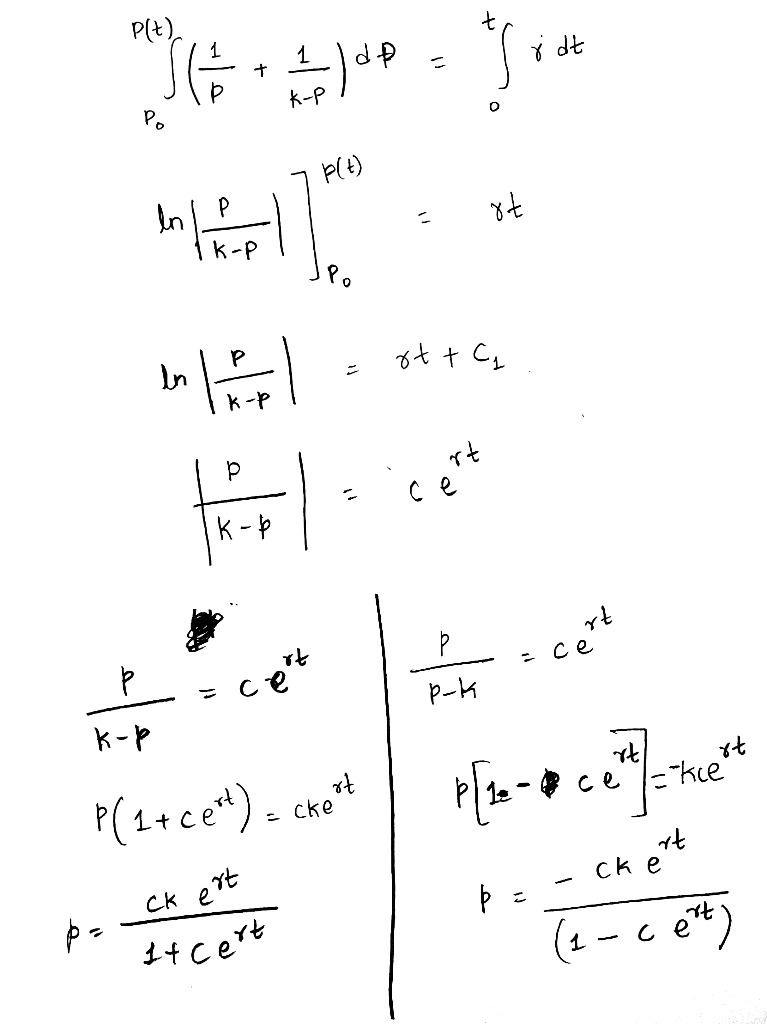 ∫_{P₀}^{P(t)} (1/P + 1/(k-P)) dP = ∫_0^t r dt
ln |P/(k-P)| ]_{P₀}^{P(t)} = rt
ln |P/(k-P)| = rt + C₁
|P/(k-P)| = c e^{rt}
P/(k-P) = c e^{rt}
P(1 + c e^{rt}) = cke^{rt}
P = ck e^{rt}/(1 + c e^{rt})
P/(P-k) = c e^{rt}
P[1 - c e^{rt}] = -kce^{rt}
P = -ck e^{rt}/(1 - c e^{rt})